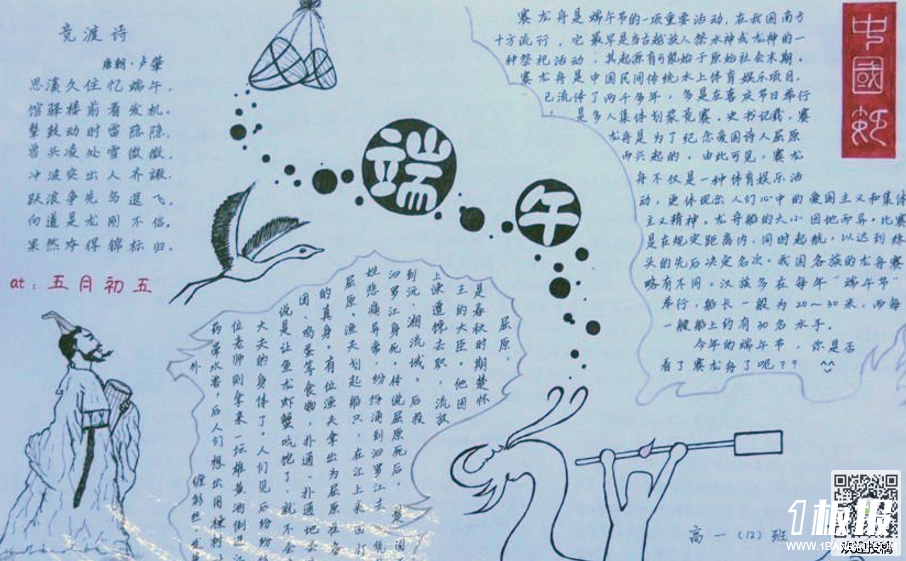 竞渡诗
唐朝·卢肇
思溪久住忆端午,
馆驿楼前看发机。
鼙鼓动时雷隐隐,
兽头凌处雪微微。
冲波突出人齐譀,
跃浪争先鸟退飞。
向道是龙刚不信,
果然夺得锦标归。
at:五月初五
端午
赛龙舟是端午节的一项重要活动,在我国南方
十方流行,它最早是当古越族人祭水神或龙神的一
种祭祀活动,其起源有可能始于原始社会末期。
赛龙舟是中国民间传统水上体育娱乐项目,
已流传了两千多年,多是在喜庆节日举行
,是多人集体划桨竞赛。史书记载,赛
龙舟是为了纪念爱国诗人屈原
而兴起的,由此可见,赛龙
舟不仅是一种体育娱乐活
动,更体现出人们心中的爱国主义和集体
主义精神。龙舟船的大小因地而异。比赛
是在规定距离内,同时起航,以达到终
头的先后决定名次。我国各族的龙舟赛
略有不同。汉族多在每年"端午节"
举行,船长一般为20～30米,而每
一艘船上约有30名水手。
今年的端午节,你是否
看了赛龙舟了呢??
中國
屈原,
是春秋时期楚怀
王的大臣。他因
上谏遭馋去职,流放
到沅、湘流域。后投
汨罗江身死。传说屈原死后,
姓悲痛异常,纷纷涌到汨罗江去
屈原。渔夫划起船只,在江上来回打
的真身,有位渔夫拿出为屈原准备
团、鸡蛋等食物,扑通、扑通地
说是让鱼龙虾蟹吃饱了,就不会
大夫的身体了。人们见后纷纷
位老师则拿来一坛雄黄酒倒进
药晕水兽,后人们想出用楝树
外
高一(12)班
1板报
WWW.1BANBAO.COM
欢迎投稿